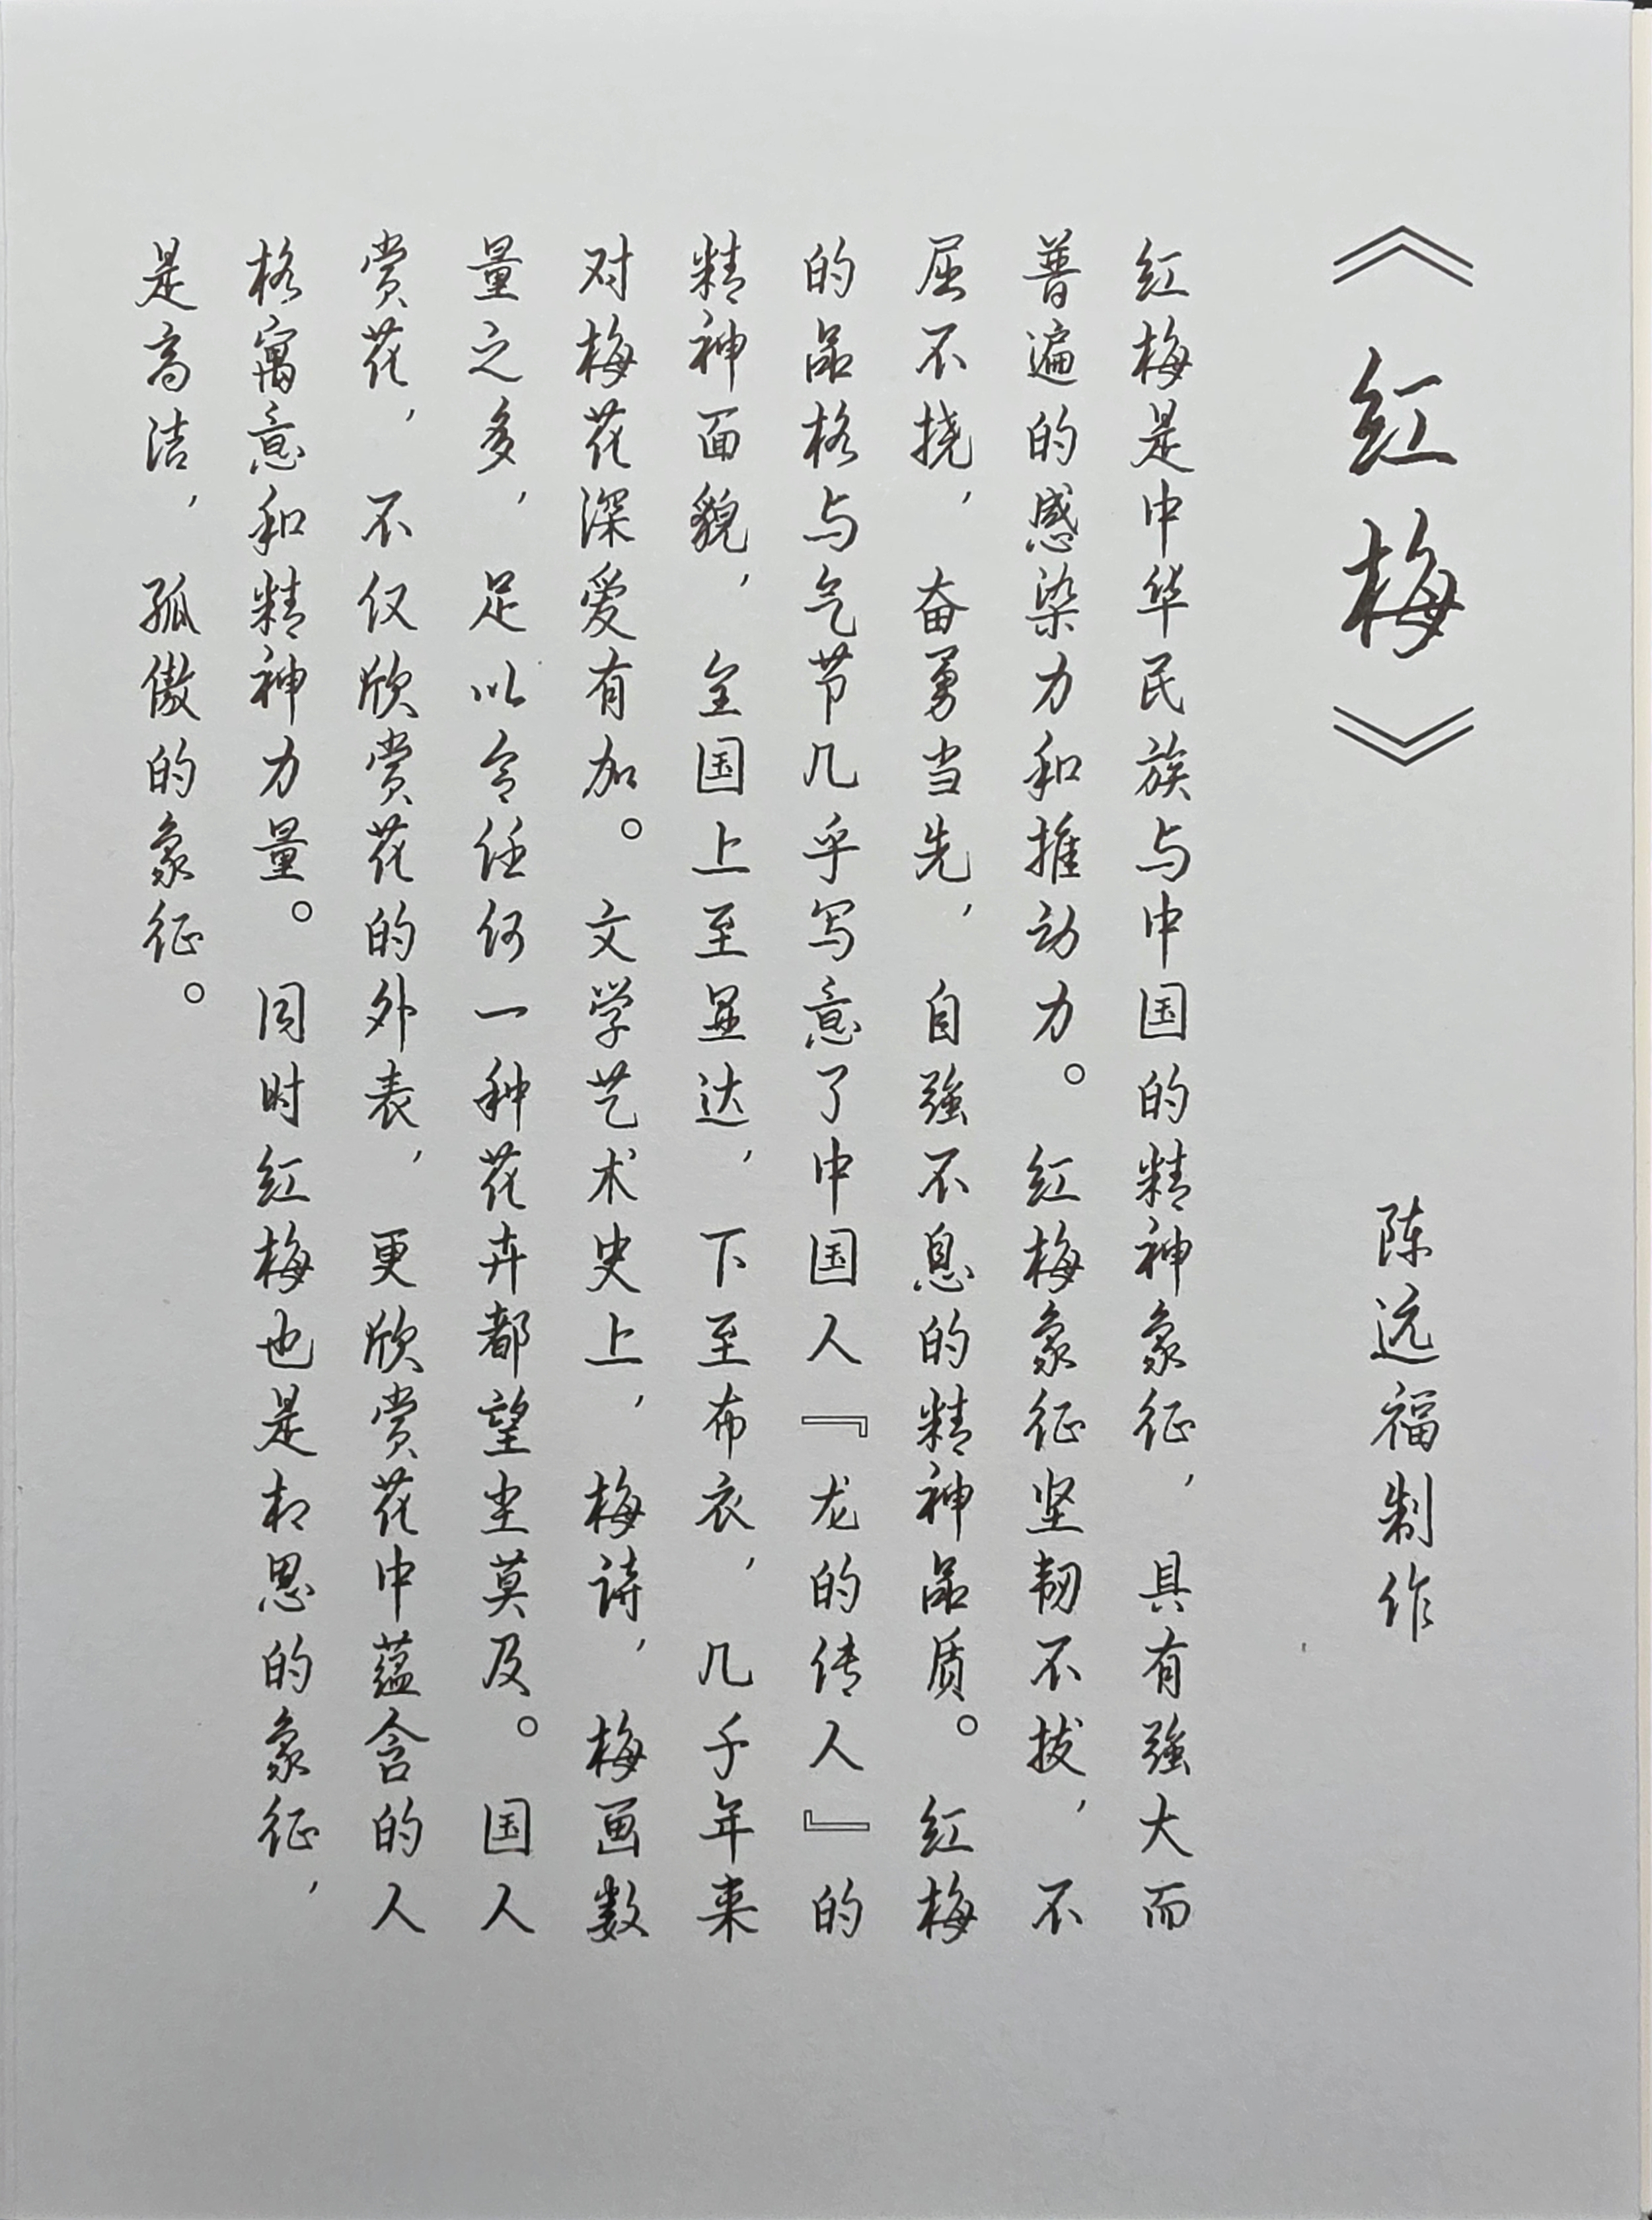 《红梅》 陈远福制作
红梅是中华民族与中国的精神象征，具有强大而
普遍的感染力和推动力。红梅象征坚韧不拔，不
屈不挠，奋勇当先，自强不息的精神品质。红梅
的品格与气节几乎写意了中国人『龙的传人』的
精神面貌，全国上至显达，下至布衣，几千年来
对梅花深爱有加。文学艺术史上，梅诗，梅画数
量之多，足以令任何一种花卉都望尘莫及。国人
赏花，不仅欣赏花的外表，更欣赏花中蕴含的人
格寓意和精神力量。同时红梅也是相思的象征，
是高洁，孤傲的象征。